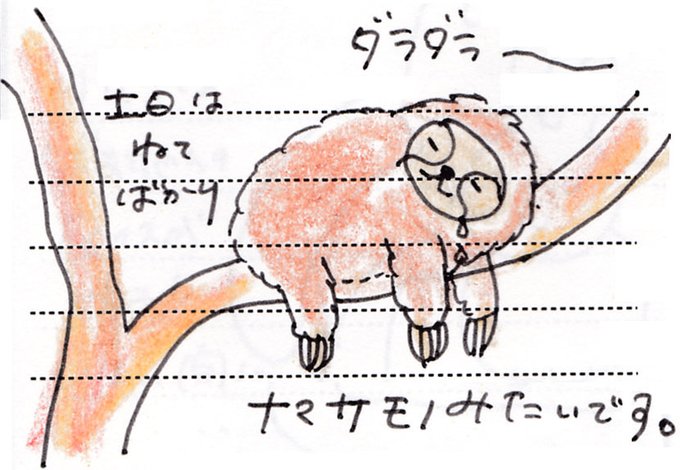 ダラダラ〜
土日は
ねて
ばかり
ナマケモノみたいです。